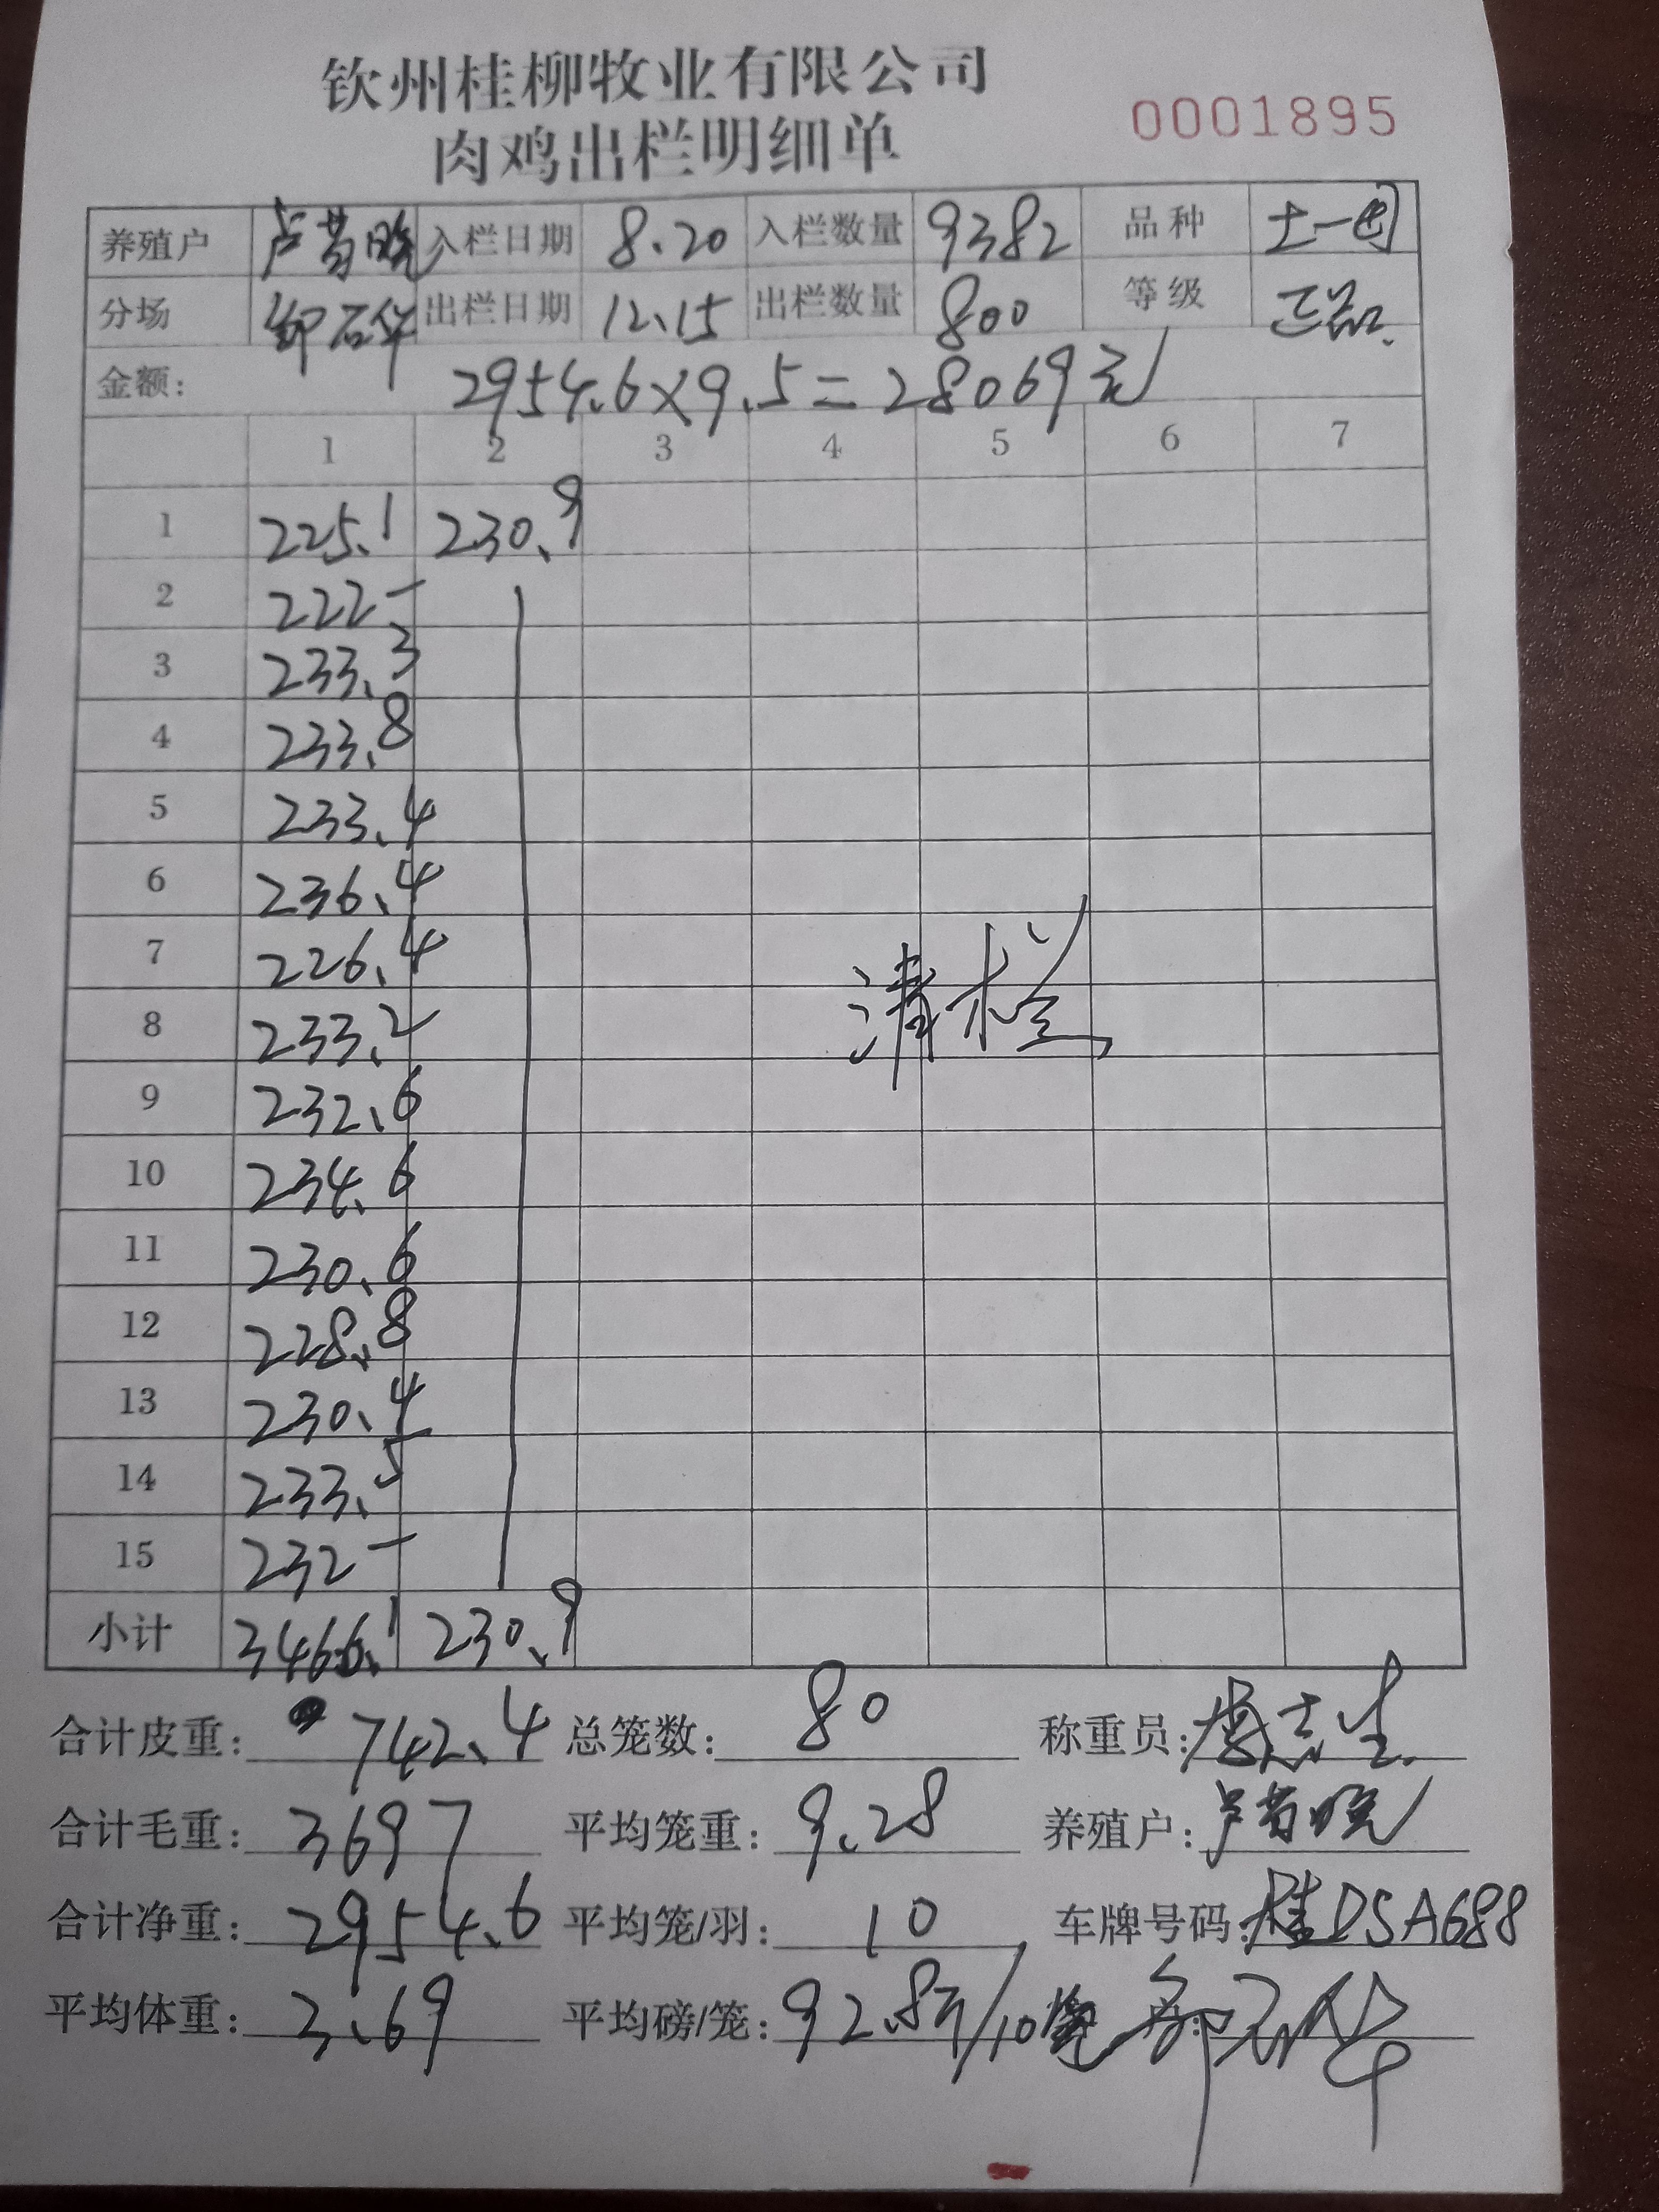 钦州桂柳牧业有限公司
肉鸡出栏明细单
0001895
养殖户 卢 入栏日期 8.20 入栏数量 9382 品种 土一
分场 华 出栏日期 12.15 出栏数量 800 等级 品
金额: 2954.6×9.5=28069元
1 2 3 4 5 6 7
1 225.1 230.9
2 222-
3 233.3
4 233.8
5 233.4
6 236.4
7 226.4
8 233.2
9 232.6
10 234.6
11 230.6
12 228.8
13 230.4
14 233.5
15 232-
清栏
小计 3466.1 230.9
合计皮重: 742.4 总笼数: 80 称重员: 志生
合计毛重: 3697 平均笼重: 9.28 养殖户: 卢
合计净重: 2954.6 平均笼/羽: 10 车牌号码: 桂DSA688
平均体重: 3.69 平均磅/笼: 92.8斤/10 华